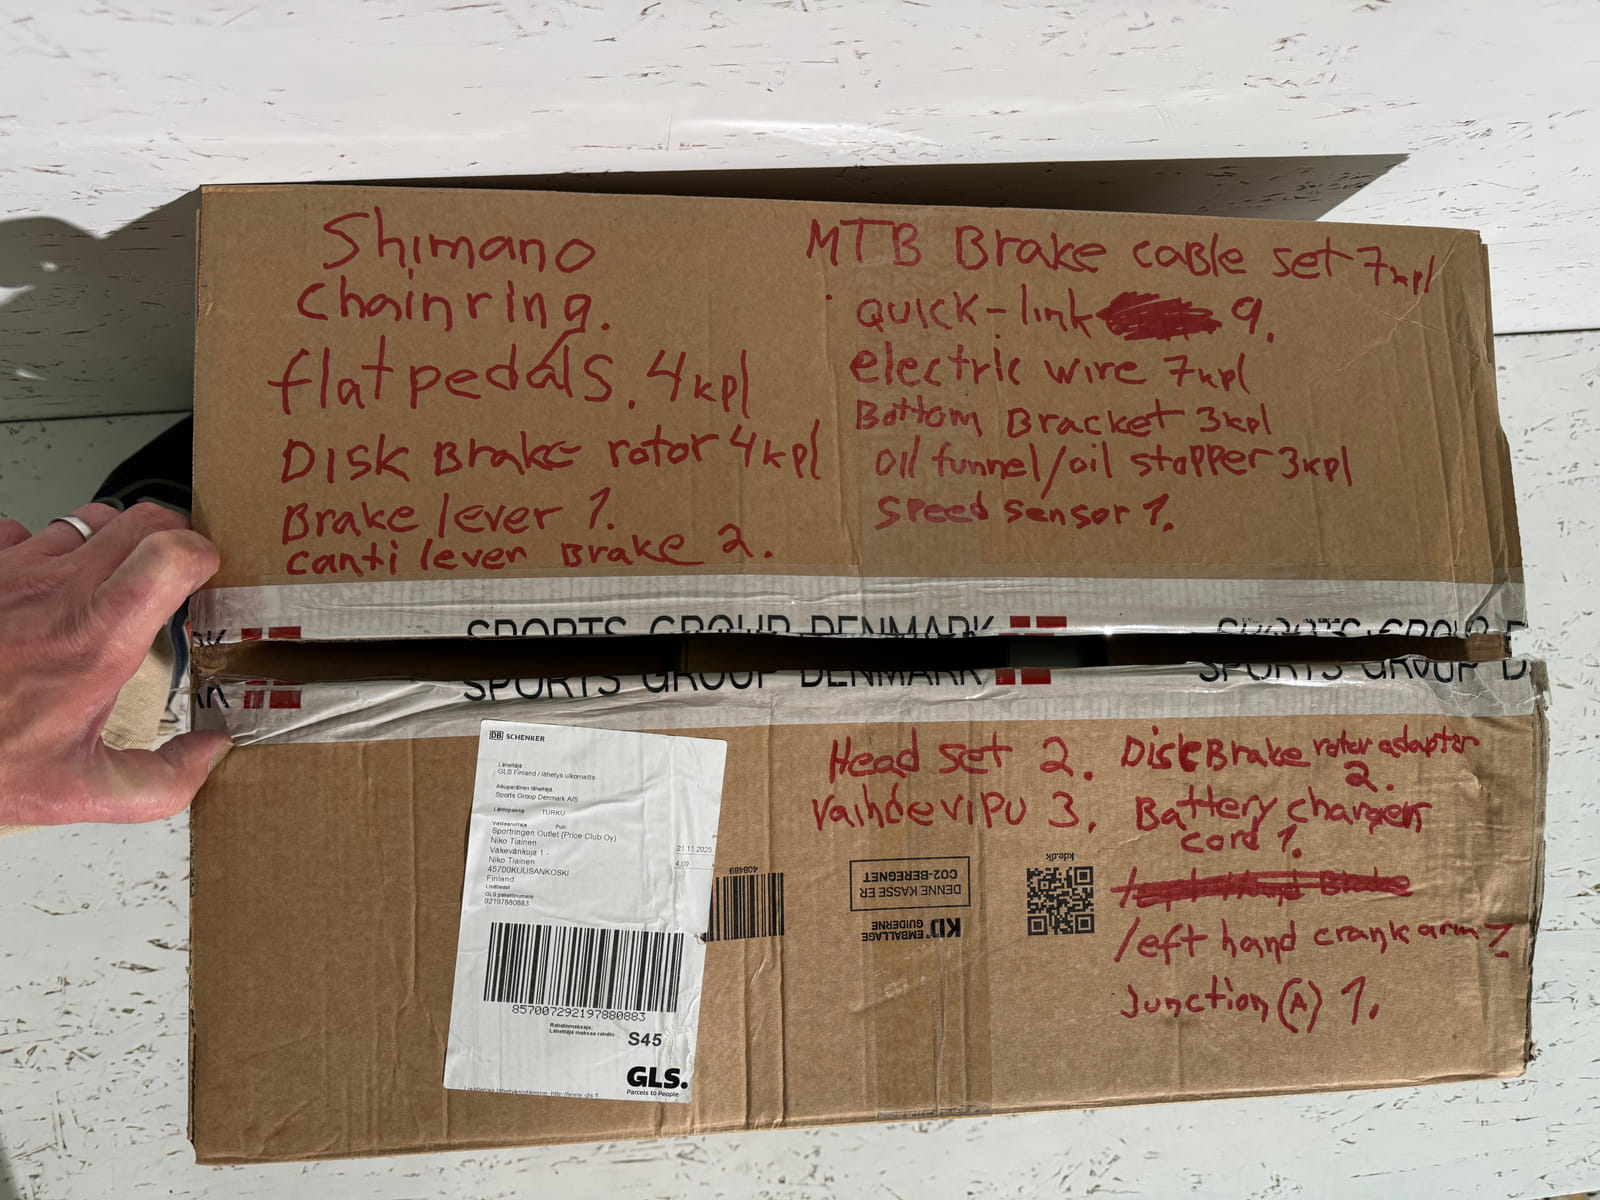 Shimano
chainring.
flat pedals. 4kpl
Disk Brake rotor 4kpl
Brake lever 1.
canti lever Brake 2.
MTB Brake caBle set 7kpl
quick-link 9.
electric wire 7kpl
Bottom Bracket 3kpl
oil funnel/oil stopper 3kpl
speed sensor 1.
SPORTS GROUP DENMARK
SPORTS GROUP D
RK SPORTS GROUP DENMARK
SPORTS GROUP D
DB SCHENKER
Lähettäjä
GLS Finland / lähetys ulkomailta
Alkuperäinen lähettäjä
Sports Group Denmark A/S
Lähtöpaikka TURKU
Vastaanottaja Puh:
Sportringen Outlet (Price Club Oy)
Niko Tiainen
Väkevänkuja 1 -
Niko Tiainen
45700KUUSANKOSKI
Finland
Lisätiedot
GLS pakettinumero
92197880883
21.11.2025
4.09
857007292197880883
Rahdinmaksaja:
Lähettäjä maksaa rahdin
S45
GLS.
Parcels to People
408489
Head set 2.
Vaihdevipu 3.
Disk Brake rotor adapter
2.
Battery charger
cord 1.
left hand crank arm
Junction (A) 1.
DENNE KASSE ER
CO2-BEREGNET
KD EMBALLAGE
GUIDERNE
kde.dk